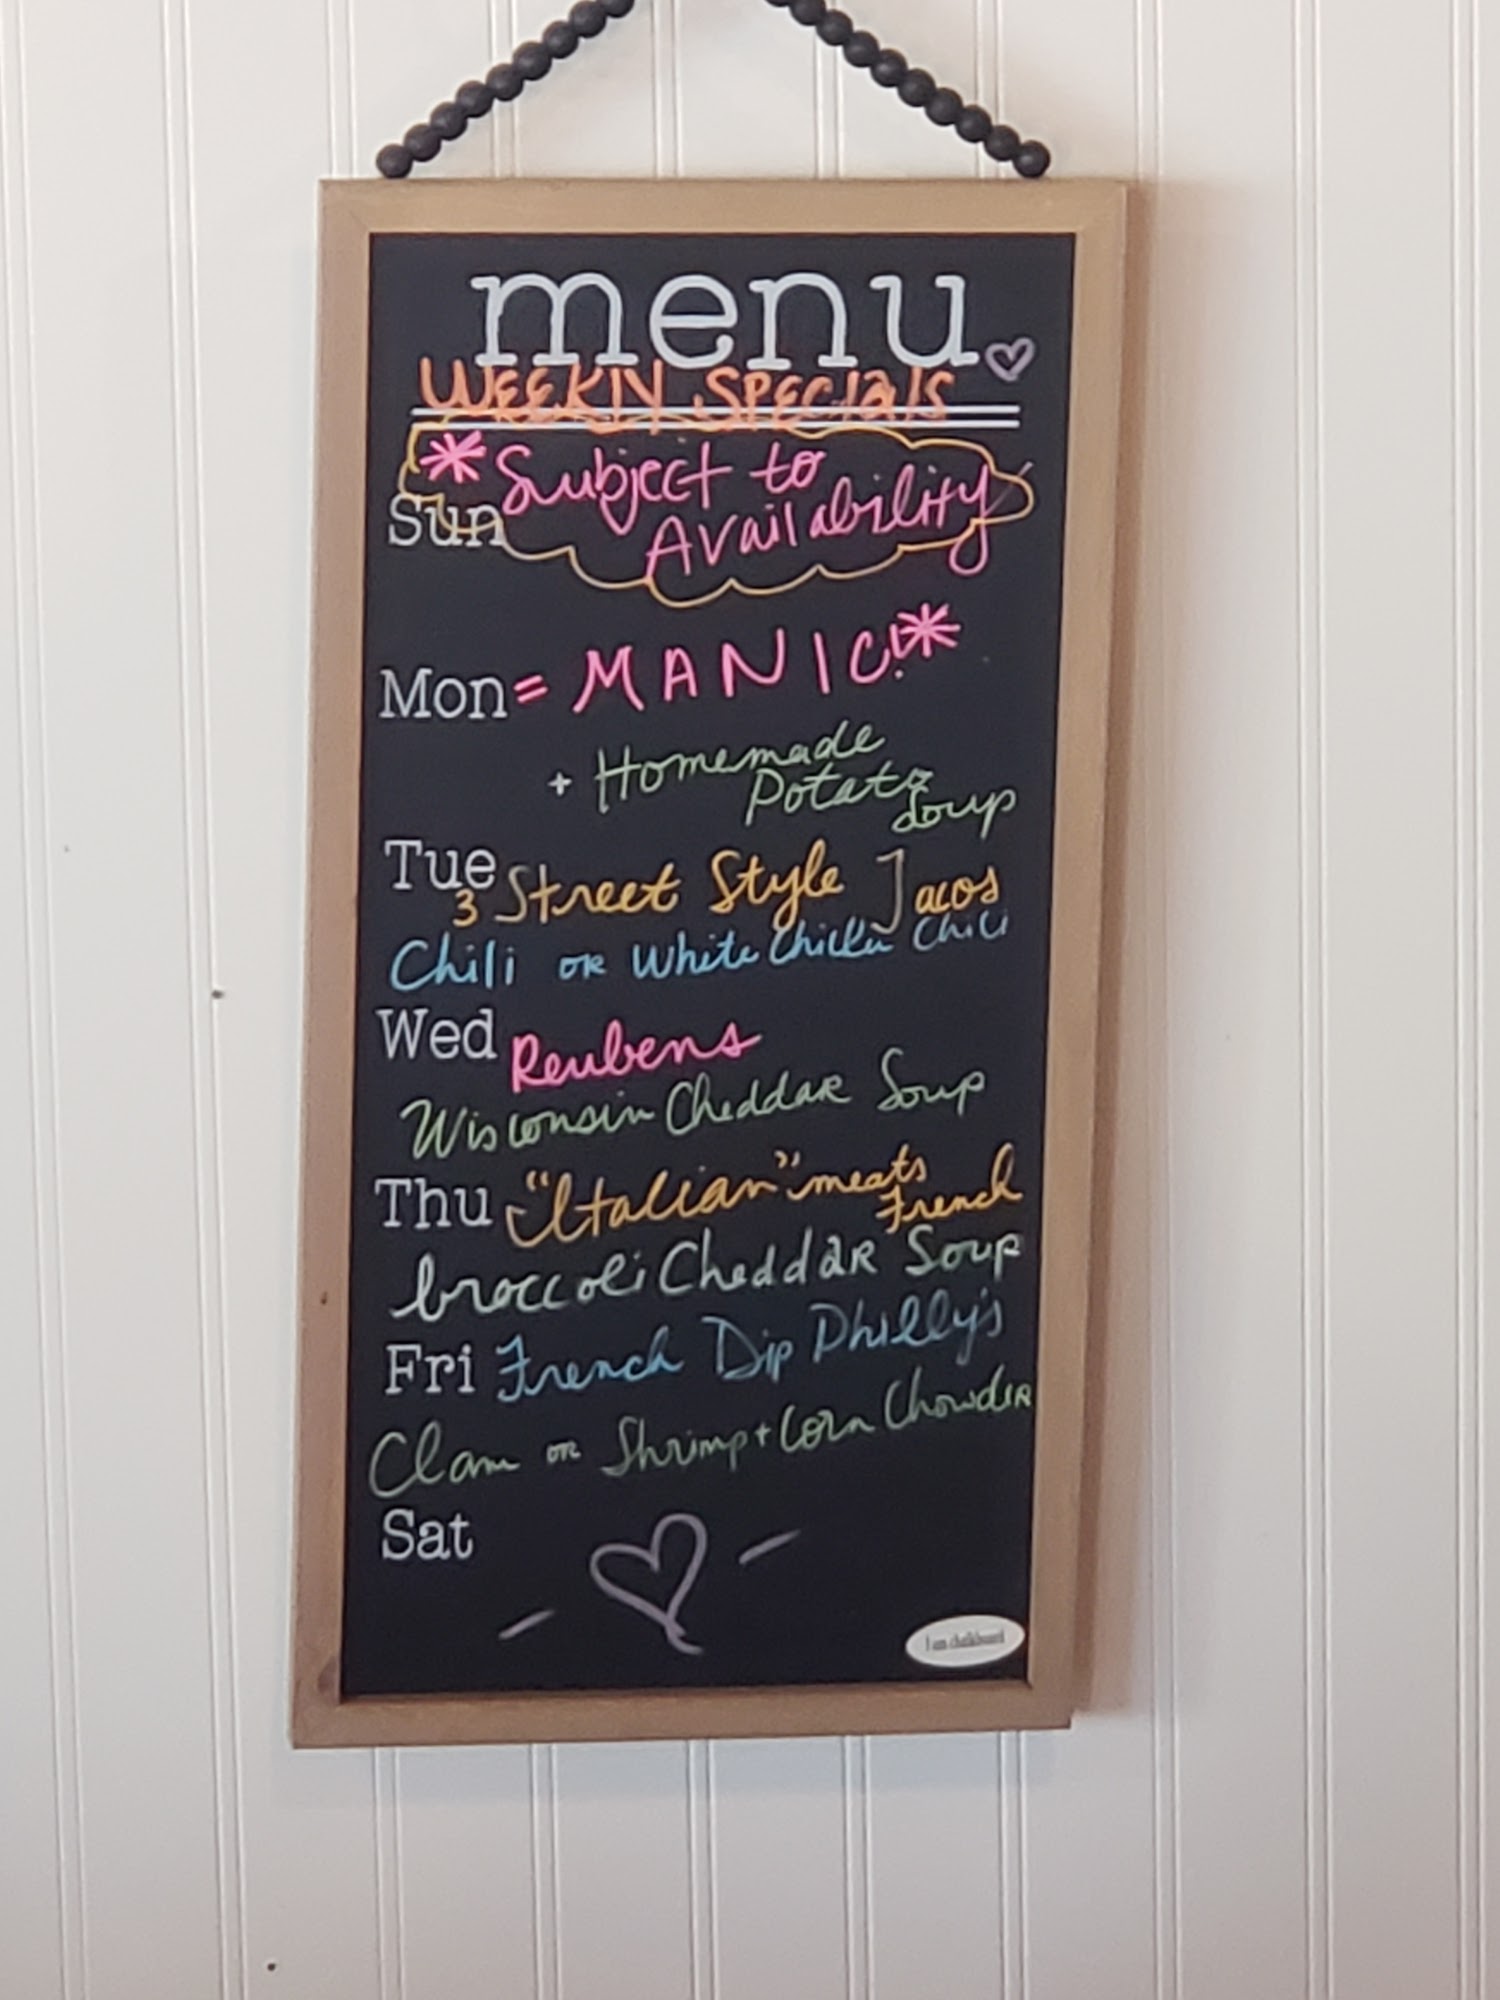 menu
WEEKLY SPECIALS
* Subject to
Availability
Sun
Mon = MANIC! *
+ Homemade
Potato
Soup
Tue 3 Street Style Tacos
Chili OR White Chicken Chili
Wed Reubens
Wisconsin Cheddar Soup
Thu "Italian" meats
French
broccoli Cheddar Soup
Fri French Dip Philly's
Clam OR Shrimp + Corn Chowder
Sat
I am chalkboard